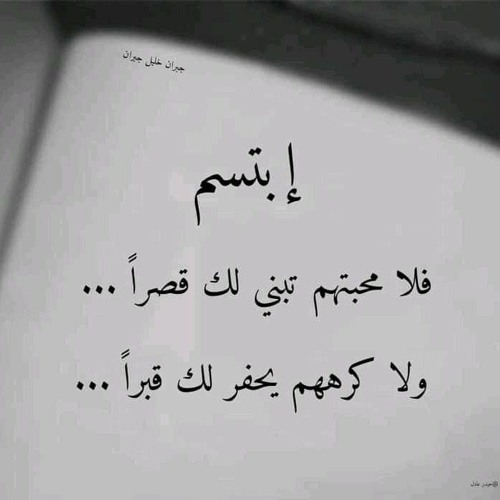 جبران خليل جبران
إبتسم
فلا محبتهم تبني لك قصراً ...
ولا كرههم يحفر لك قبراً ...
حيدر عادل